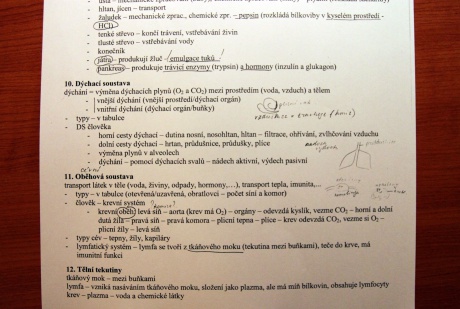 hltan, jícen – transport
- žaludek – mechanické zprac., chemické zpr. – pepsin (rozkládá bílkoviny v kyselém prostředí -
HCl)
- tenké střevo – končí trávení, vstřebávání živin
- tlusté střevo – vstřebávání vody
- konečník
- játra – produkují žluč – emulgace tuků
- pankreas – produkuje trávicí enzymy (trypsin) a hormony (inzulin a glukagon)
10. Dýchací soustava
dýchání = výměna dýchacích plynů (O2 a CO2) mezi prostředím (voda, vzduch) a tělem
- vnější dýchání (vnější prostředí/dýchací orgán)
- vnitřní dýchání (dýchací orgán/buňky)
- typy – v tabulce
- DS člověka
- horní cesty dýchací – dutina nosní, nosohltan, hltan – filtrace, ohřívání, zvlhčování vzduchu
- dolní cesty dýchací – hrtan, průdušnice, průdušky, plíce
- výměna plynů v alveolech
- dýchání – pomocí dýchacích svalů – nádech aktivní, výdech pasivní
11. Oběhová soustava
transport látek v těle (voda, živiny, odpady, hormony,…), transport tepla, imunita,…
- typy – v tabulce (otevřená/uzavřená, obratlovci – počet síní a komor)
- člověk – krevní systém
- krevní oběh levá síň – aorta (krev má O2) – orgány – odevzdá kyslík, vezme CO2 – horní a dolní
dutá žíla – pravá síň – pravá komora – plicní tepna – plíce – krev odevzdá CO2, vezme si O2 –
plicní žíly – levá síň
- typy cév – tepny, žíly, kapiláry
- lymfatický systém – lymfa se tvoří z tkáňového moku (tekutina mezi buňkami), teče do krve, má
imunitní funkci
12. Tělní tekutiny
tkáňový mok – mezi buňkami
lymfa – vzniká nasáváním tkáňového moku, složení jako plazma, ale má míň bílkovin, obsahuje lymfocyty
krev – plazma – voda a chemické látky